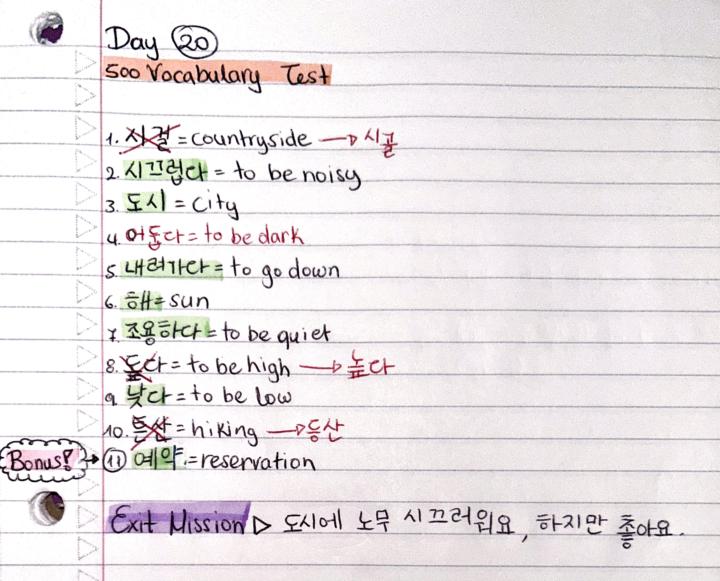 Day 20
500 Vocabulary Test
1. 시걸 = countryside → 시골
2. 시끄럽다 = to be noisy
3. 도시 = City
4. 어둡다 = to be dark
5. 내려가다 = to go down
6. 해 = sun
7. 조용하다 = to be quiet
8. 다 = to be high → 높다
9. 낮다 = to be low
10. = hiking → 등산
Bonus! → 11 예약 = reservation
Exit Mission ▷ 도시에 노무 시끄러워요, 하지만 좋아요.